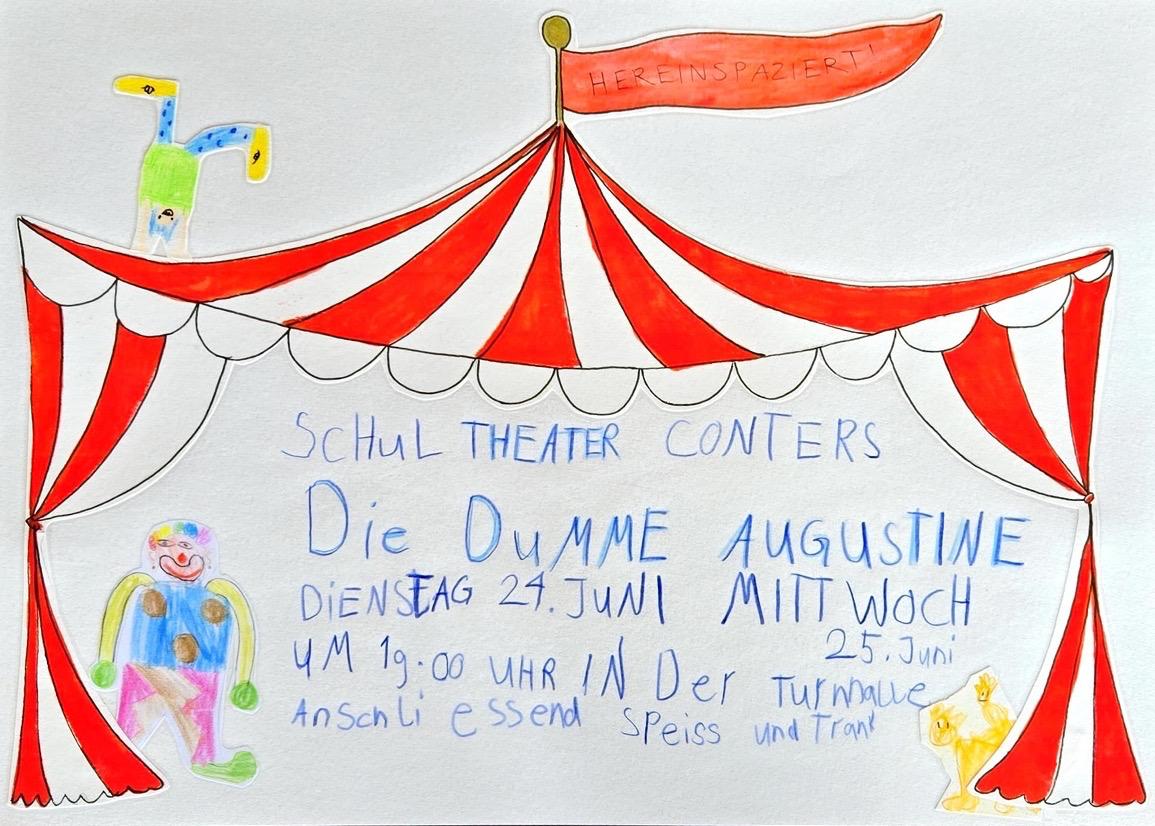 HEREINSPAZIERT!
SCHUL THEATER CONTERS
Die DuMME AUGUSTINE
DiENSTAG 24. JuNI MITTWOCH
25. Juni
UM 19.00 UHR IN Der Turnhalle
Anschli essend SPeiss und Trank